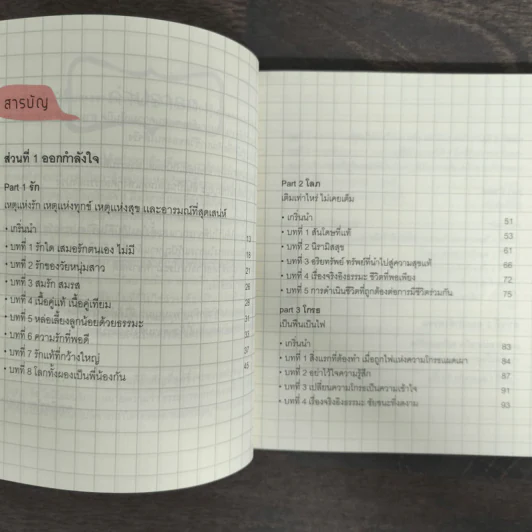 สารบัญ
ส่วนที่ 1 ออกกำลังใจ
Part 1 รัก
เหตุแห่งรัก เหตุแห่งทุกข์ เหตุแห่งสุข และอารมณ์ที่สุดเสน่ห์
• เกริ่นนำ 13
• บทที่ 1 รักใด เสมอรักตนเอง ไม่มี 19
• บทที่ 2 รักของวัยหนุ่มสาว 21
• บทที่ 3 สมรัก สมรส
• บทที่ 4 เนื้อคู่แท้ เนื้อคู่เทียม
• บทที่ 5 หล่อเลี้ยงลูกน้อยด้วยธรรมะ
• บทที่ 6 ความรักที่พอดี 33
• บทที่ 7 รักแท้ที่กว้างใหญ่ 37
• บทที่ 8 โลกทั้งผองเป็นพี่น้องกัน 45
Part 2 โลภ
เติมเท่าไหร่ ไม่เคยเต็ม
• เกริ่นนำ 51
• บทที่ 1 สันโดษที่แท้ 53
• บทที่ 2 นิรามิสสุข 61
• บทที่ 3 อริยทรัพย์ ทรัพย์ที่นำไปสู่ความสุขแท้ 66
• บทที่ 4 เรื่องจริงอิงธรรมะ ชีวิตที่พอเพียง 72
• บทที่ 5 การดำเนินชีวิตที่ถูกต้องต่อการมีชีวิตร่วมกัน 75
part 3 โกรธ
เป็นฟืนเป็นไฟ
• เกริ่นนำ 83
• บทที่ 1 สิ่งแรกที่ต้องทำ เมื่อถูกไฟแห่งความโกรธแผดเผา 84
• บทที่ 2 อย่าไว้ใจความรู้สึก 87
• บทที่ 3 เปลี่ยนความโกรธเป็นความเข้าใจ 91
• บทที่ 4 เรื่องจริงอิงธรรมะ ชัยชนะที่งดงาม 93